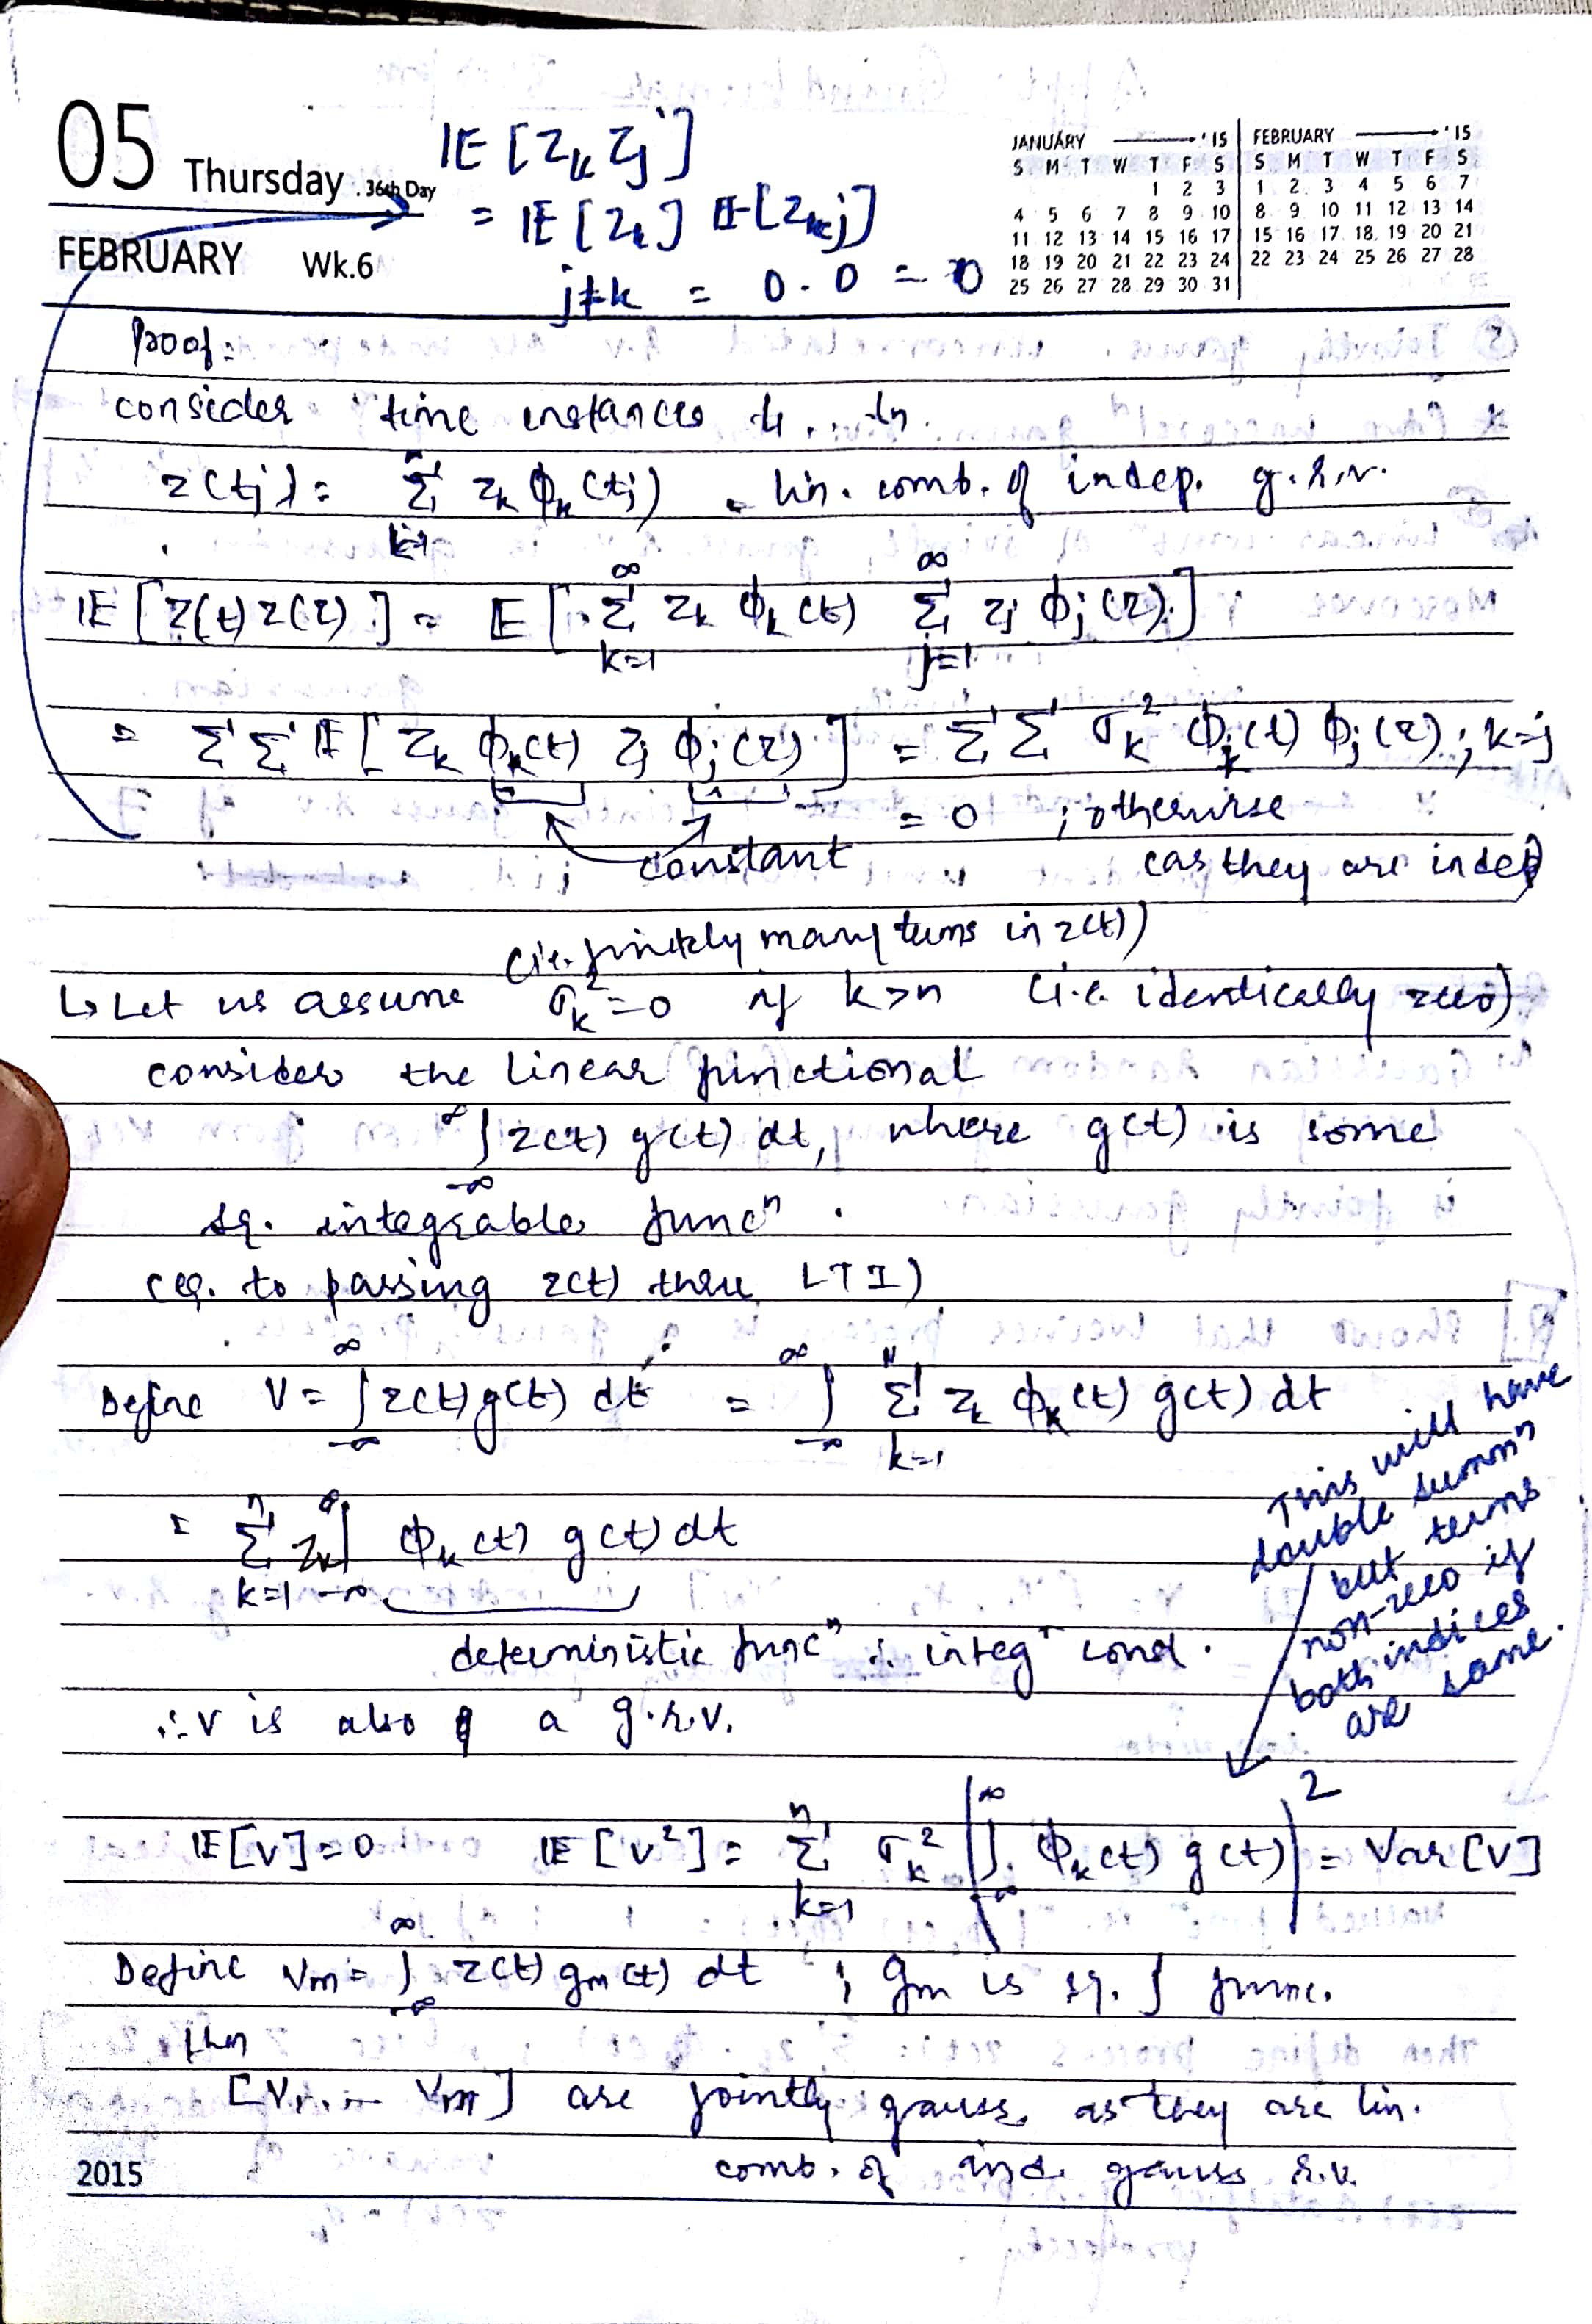 05 Thursday . 36th Day
FEBRUARY Wk.6
JANUARY '15
S M T W T F S
1 2 3
4 5 6 7 8 9 10
11 12 13 14 15 16 17
18 19 20 21 22 23 24
25 26 27 28 29 30 31
FEBRUARY '15
S M T W T F S
1 2 3 4 5 6 7
8 9 10 11 12 13 14
15 16 17 18 19 20 21
22 23 24 25 26 27 28
IE [Z_k Z_j]
= IE [Z_k] IE [Z_j]
j≠k = 0.0 = 0
Proof:
consider time instances t_1...t_n.
z(t_j) = Σ_{k=1}^{n} z_k φ_k(t_j) = lin. comb. of indep. g.r.v.
IE [Z(t) Z(τ)] = E [Σ_{k=1}^{∞} z_k φ_k(t) Σ_{j=1}^{∞} z_j φ_j(τ)]
= Σ Σ IE [Z_k φ_k(t) Z_j φ_j(τ)] = Σ Σ σ_k^2 φ_k(t) φ_j(τ) ; k=j
= 0 ; otherwise
constant (as they are indep)
(i.e. finitely many terms in z(t))
↳ Let us assume σ_k^2 = 0 if k>n (i.e. identically zero)
consider the linear functional
∫_{-∞}^{∞} z(t) g(t) dt, where g(t) is some
sq. integrable func^n.
(eq. to passing z(t) thru LTI)
Define V = ∫_{-∞}^{∞} z(t) g(t) dt = ∫_{-∞}^{∞} Σ_{k=1}^{n} z_k φ_k(t) g(t) dt
= Σ_{k=1}^{n} z_k ∫_{-∞}^{∞} φ_k(t) g(t) dt
deterministic func^n ∴ integ^n const.
This will have
double summ^n
but terms
non-zero if
both indices
are same.
∴ V is also a g.r.v.
IE[V] = 0 IE [V^2] = Σ_{k=1}^{n} σ_k^2 |∫_{-∞}^{∞} φ_k(t) g(t)|^2 = Var[V]
Define V_m = ∫_{-∞}^{∞} z(t) g_m(t) dt ; g_m is sq. ∫ func.
then
[V_1.... V_m] are jointly gauss. as they are lin.
comb. of ind. gauss r.v.
2015